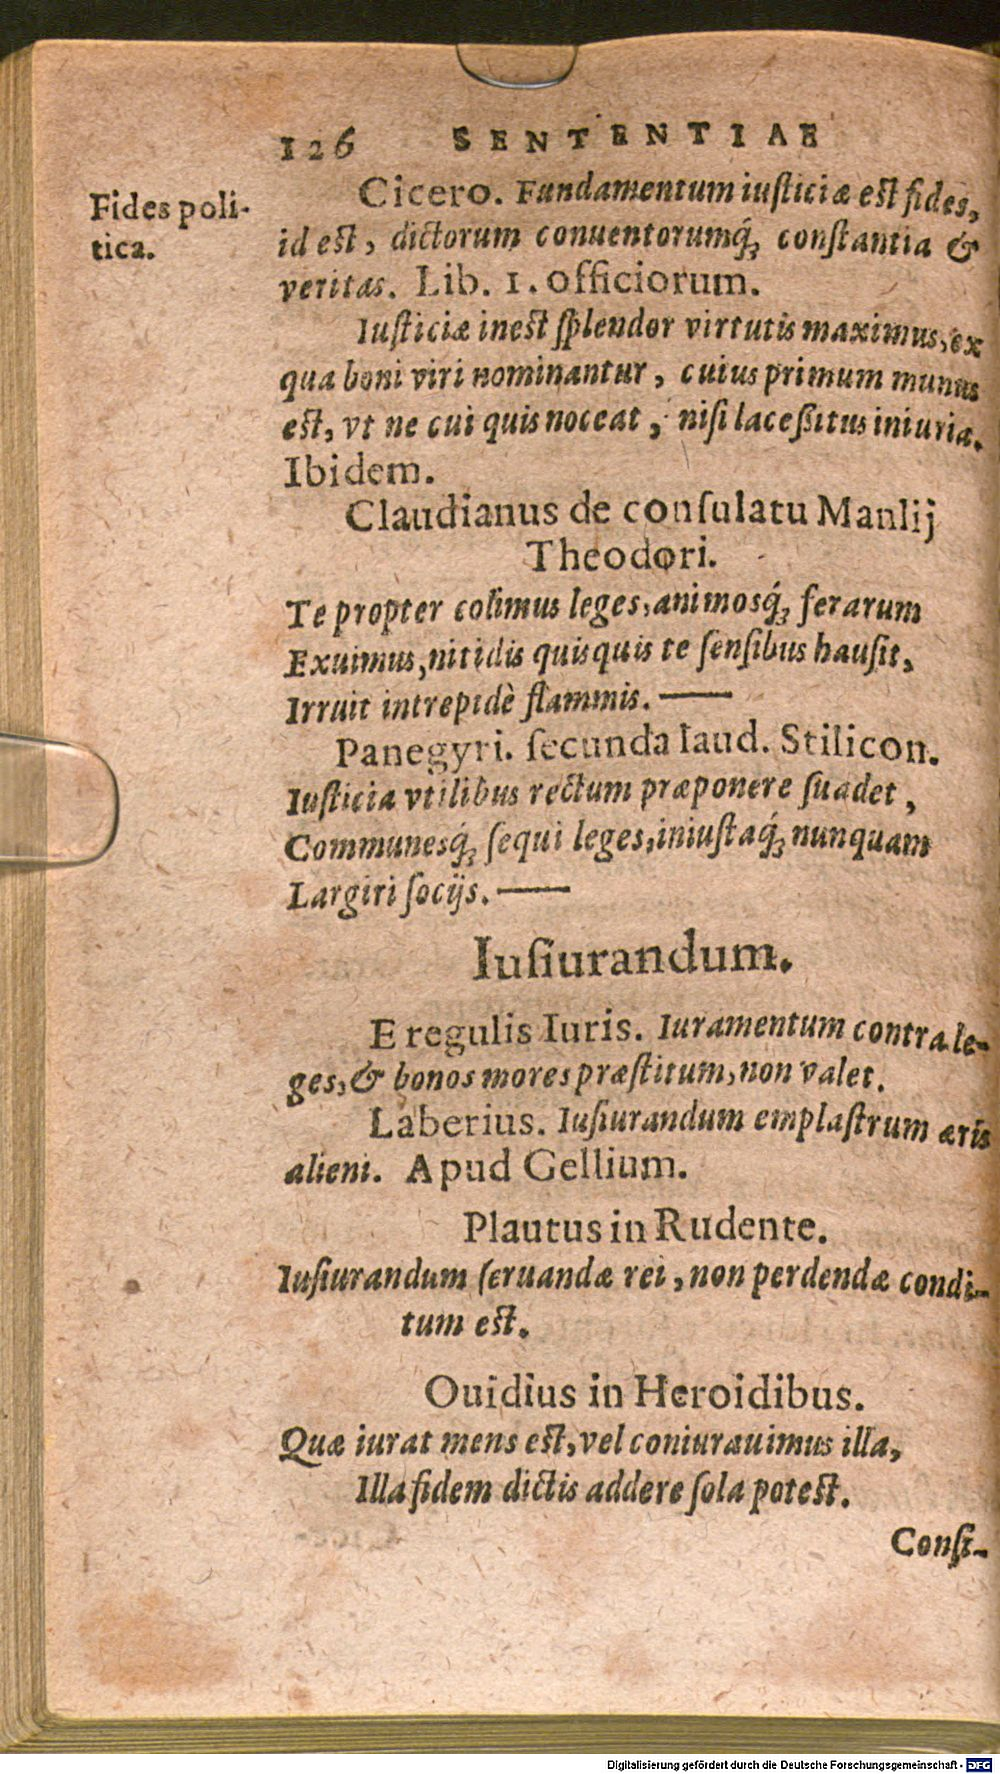 126 SENTENTIAE
Fides poli-
tica.
Cicero. Fundamentum iuſticiæ eſt fides,
id eſt, dictorum conuentorumq́ꝫ conſtantia &
veritas. Lib. 1. officiorum.
Iuſticiæ ineſt ſplendor virtutis maximus, ex
qua boni viri nominantur, cuius primum munus
eſt, vt ne cui quis noceat, niſi laceßitus iniuria.
Ibidem.
Claudianus de conſulatu Manlij
Theodori.
Te propter colimus leges, animosq́ꝫ ferarum
Exuimus, nitidis quisquis te ſenſibus hauſit,
Irruit intrepidè flammis. ——
Panegyri. ſecunda laud. Stilicon.
Iuſticia vtilibus rectum præponere ſuadet,
Communesq́ꝫ ſequi leges, iniuſtaq́ꝫ nunquam
Largiri ſocijs. ——
Iuſiurandum.
E regulis Iuris. Iuramentum contra le-
ges, & bonos mores præſtitum, non valet.
Laberius. Iuſiurandum emplaſtrum æris
alieni. Apud Gellium.
Plautus in Rudente.
Iuſiurandum ſeruandæ rei, non perdendæ condi-
tum eſt.
Ouidius in Heroidibus.
Quæ iurat mens eſt, vel coniurauimus illa,
Illa fidem dictis addere ſola poteſt.
Conſi-
Digitalisierung gefördert durch die Deutsche Forschungsgemeinschaft - DFG